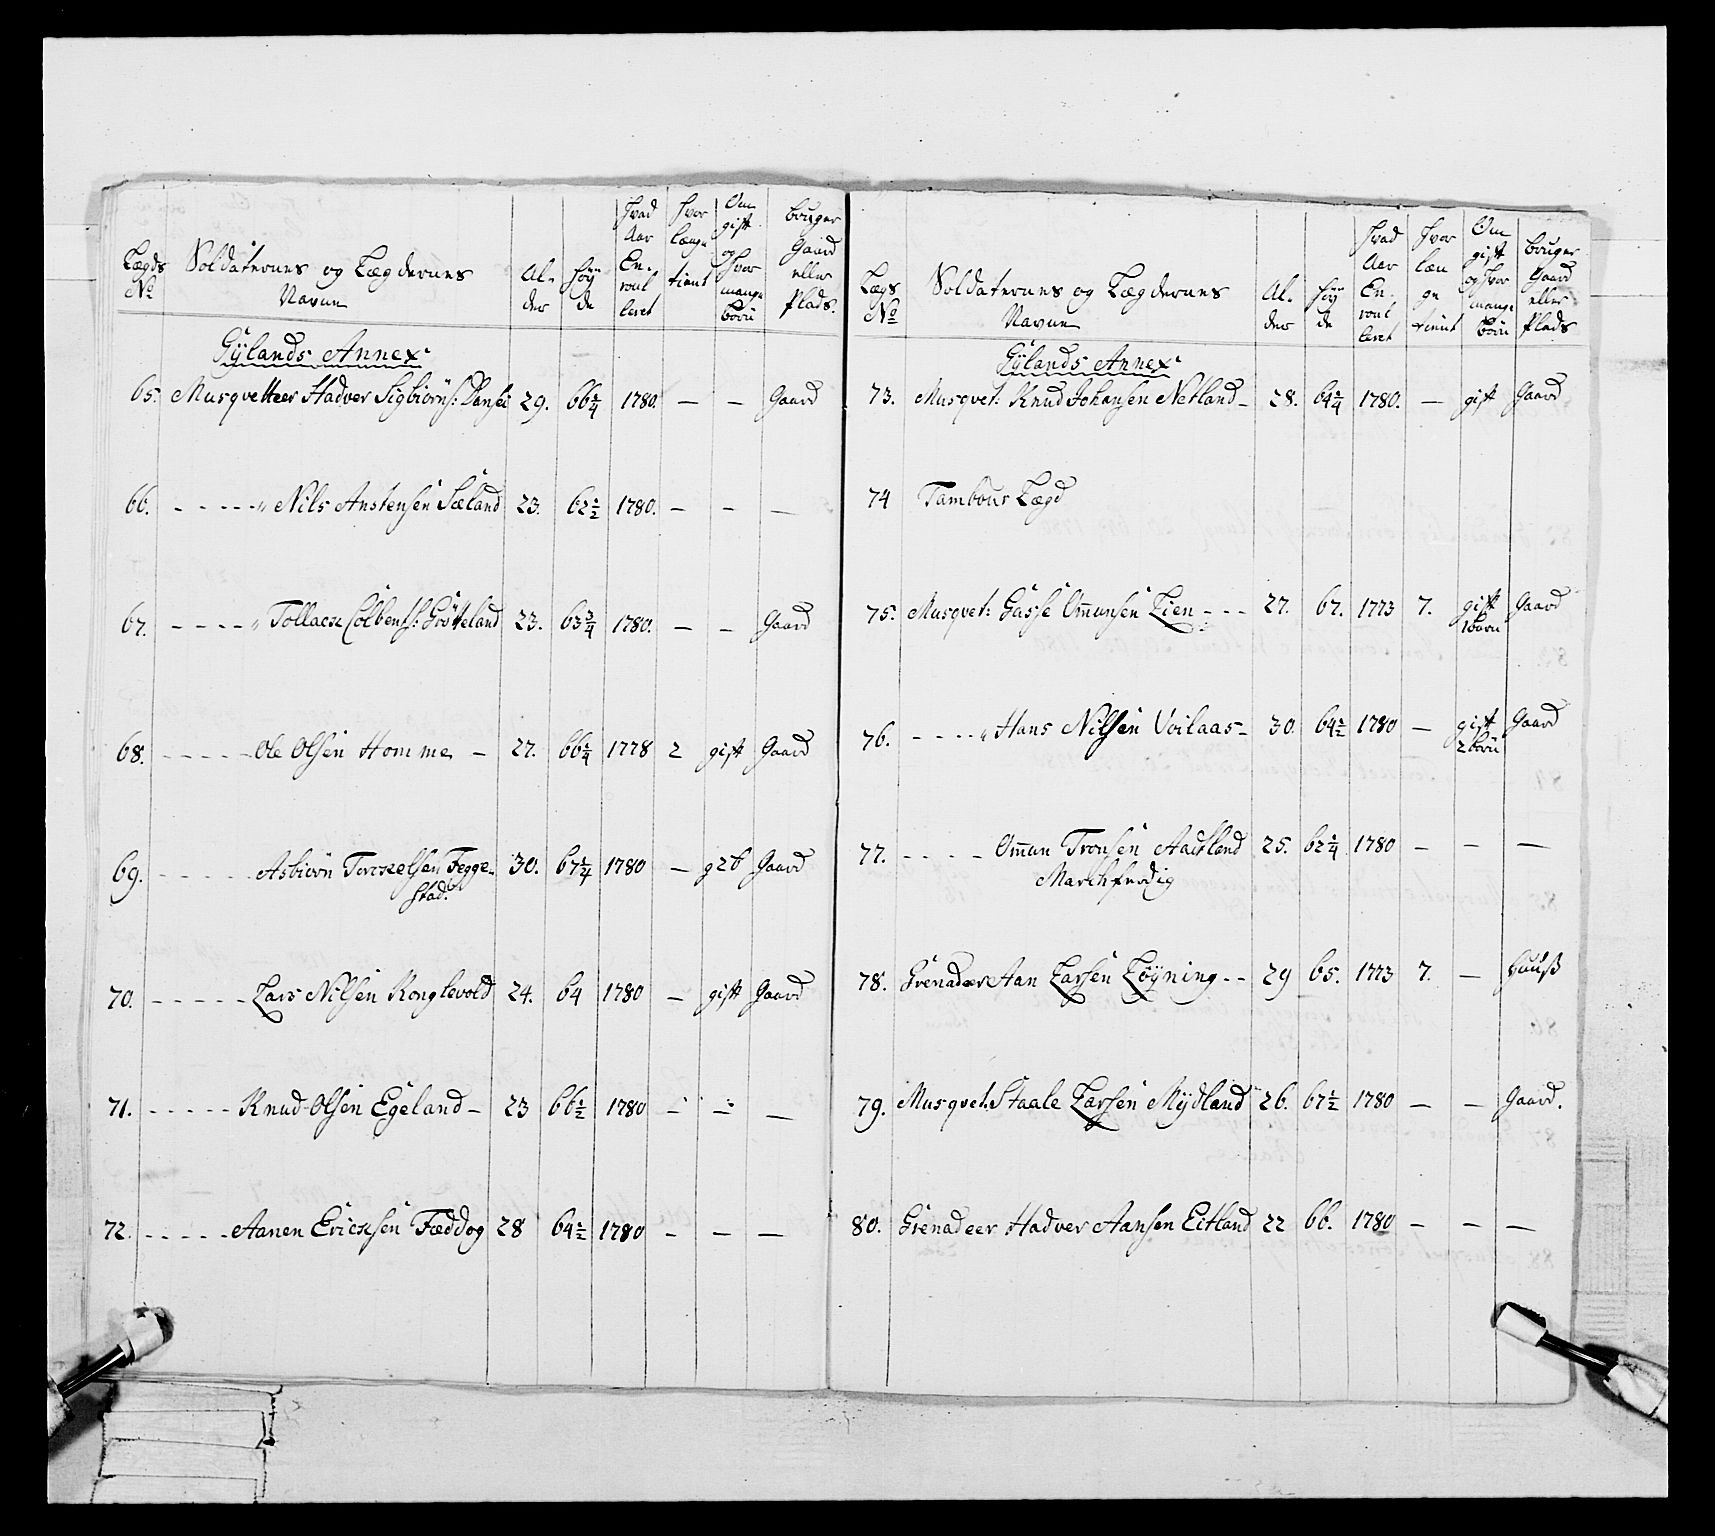 Lægds No | Soldaternes og Lægdernes Navne | Al- der | Høy de | Hvad Aar En- roul leret | Hvor længe tient | Om gift og Hvor mange børn | bruger Gaard eller Plads.
Gÿlands Annex
65. Musqvetteer Hadver Sigbiörns: 29. 66 1/4 1780. — — Gaard
66. - - - - - „ Nils Anstensen Sæland 23. 62 1/2 1780. — — —
67. - - - - „ Tollack Colbens: Gröteland 23. 63 3/4 1780. — — Gaard
68. - - - - - Ole Olsen Homme — 27. 66 1/4 1778 2 gift Gaard
69. - - - - - Asbiörn Torckelsen Fegge- 30. 67 1/4 1780 — g2b Gaard
stad.
70. - - - - - Lars Nilsen Konglevold 24. 64 1780 — gift Gaard
71. - - - - - Knud Olsen Egeland — 23 66 1/2 1780 — — —
72. - - - - - Aanen Ericksen Fæddog 28 64 1/2 1780 — — —
Lægs No | Soldaternes og Lægdernes Navne | Al- der | Høy de | Hvad Aar En- roul leret | Hvor læn ge tient | Om gift og Hvor mange børn | bruger Gaard eller Plads
Gÿlands Annex
73. Musqvet: Knud Johansen Netland — 28. 64 1/4 1780. — gift Gaard
74 Tambour Lægd
75. Musqvet: Gasse Omunsen Lien - - - 27. 67. 1773 7. gift Gaard
1 barn
76. - - - - „ Hans Nilsen Voilaas — 30. 64 1/2 1780 — gift Gaard
2 börn
77. - - - - - Omun Tronsen Aadland 25. 62 1/4 1780 — — —
Marchferdig
78. Grenadeer Aan Larsen Löyning - - 29 65. 1773 7. — Huuß
79. Musqvet. Staale Larsen Mÿdland 26. 67 1/2 1780 — — Gaard.
80. Grenadeer Hadver Aansen Eitland 22 66. 1780 — — —